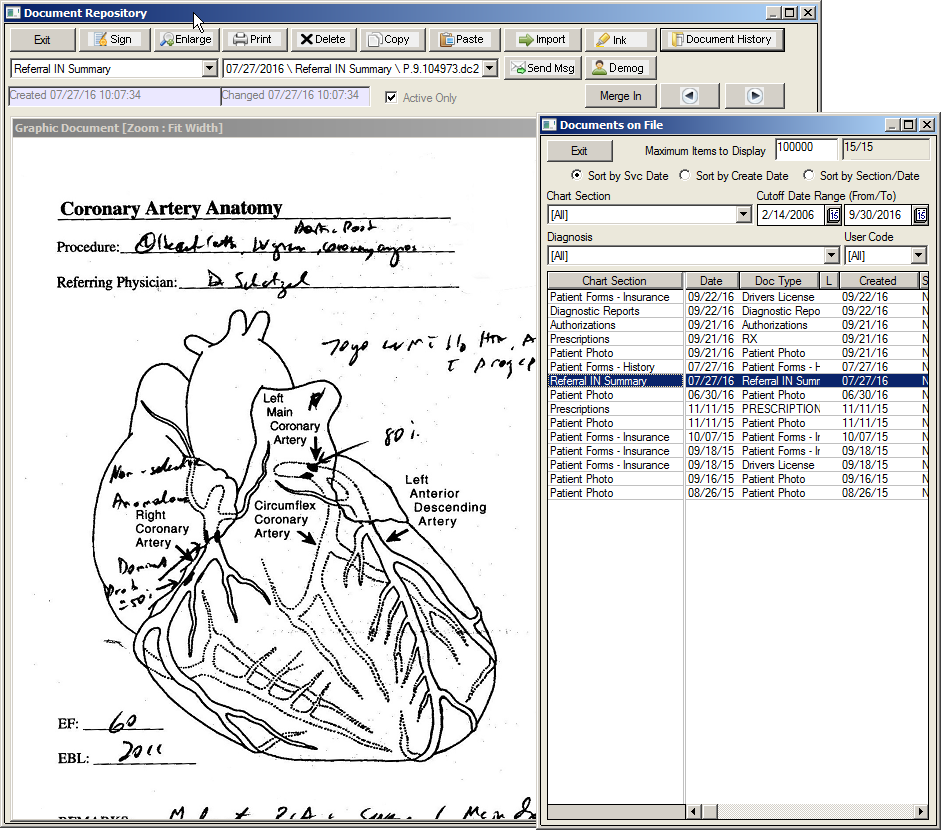 Document Repository
Exit Sign Enlarge Print Delete Copy Paste Import Ink Document History
Referral IN Summary 07/27/2016 \ Referral IN Summary \ P.9.104973.dc2 Send Msg Demog
Created 07/27/16 10:07:34 Changed 07/27/16 10:07:34 Active Only Merge In
Graphic Document [Zoom : Fit Width]
Coronary Artery Anatomy
Procedure:
Referring Physician: Dr
Left
Main
Coronary
Artery
80%
Non-selective
Anomalous
Right
Coronary
Artery
Circumflex
Coronary
Artery
Left
Anterior
Descending
Artery
EF: 60
EBL:
REMARKS
Documents on File
Exit Maximum Items to Display 100000 15/15
Sort by Svc Date Sort by Create Date Sort by Section/Date
Chart Section Cutoff Date Range (From/To)
[All] 2/14/2006 15 9/30/2016 15
Diagnosis User Code
[All] [All]
Chart Section Date Doc Type L Created S
Patient Forms - Insurance 09/22/16 Drivers License 09/22/16 N
Diagnostic Reports 09/22/16 Diagnostic Repo 09/22/16 N
Authorizations 09/21/16 Authorizations 09/21/16 N
Prescriptions 09/21/16 RX 09/21/16 N
Patient Photo 09/21/16 Patient Photo 09/21/16 N
Patient Forms - History 07/27/16 Patient Forms - H 07/27/16 N
Referral IN Summary 07/27/16 Referral IN Summ 07/27/16 N
Patient Photo 06/30/16 Patient Photo 06/30/16 N
Prescriptions 11/11/15 PRESCRIPTION 11/11/15 N
Patient Photo 11/11/15 Patient Photo 11/11/15 N
Patient Forms - Insurance 10/07/15 Patient Forms - Ir 10/07/15 N
Patient Forms - Insurance 09/18/15 Patient Forms - Ir 09/18/15 N
Patient Forms - Insurance 09/18/15 Drivers License 09/18/15 N
Patient Photo 09/16/15 Patient Photo 09/16/15 N
Patient Photo 08/26/15 Patient Photo 08/26/15 N